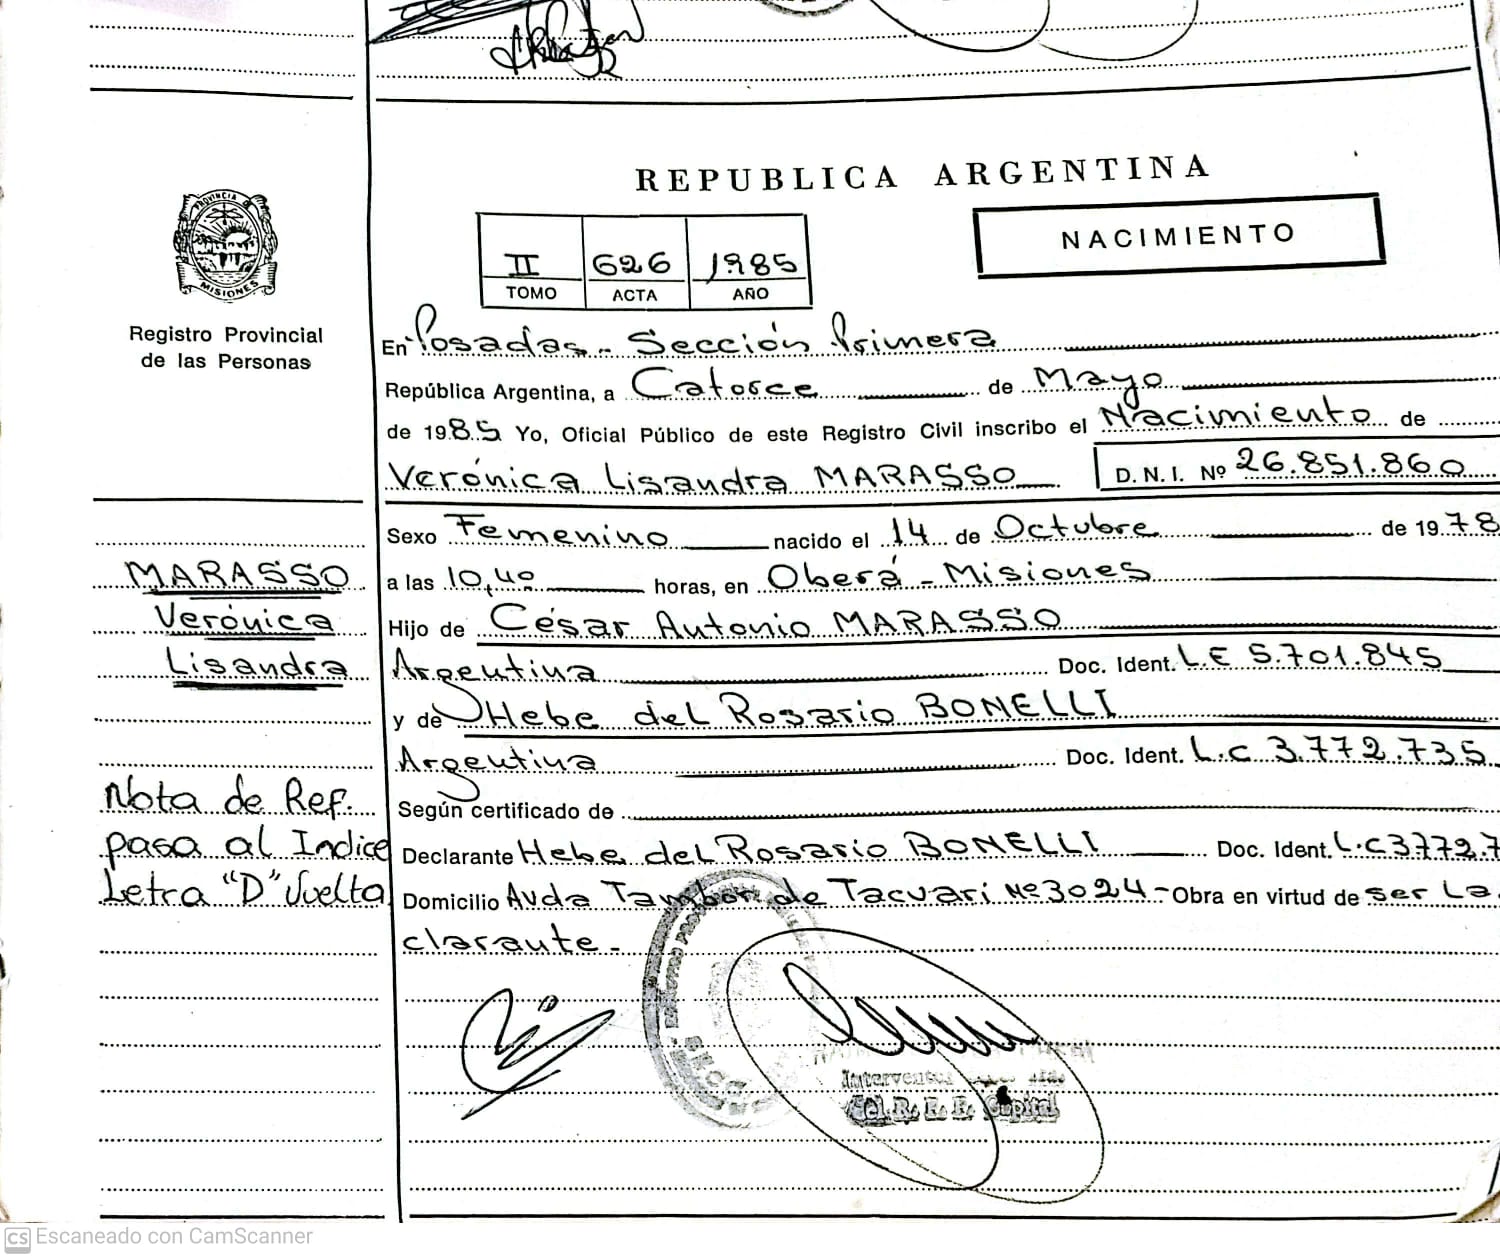 REPUBLICA ARGENTINA
NACIMIENTO
II 626 1985
TOMO ACTA AÑO
PROVINCIA DE
MISIONES
Registro Provincial
de las Personas
En Posadas - Sección Primera
República Argentina, a Catorce de Mayo
de 1985 Yo, Oficial Público de este Registro Civil inscribo el Nacimiento de
Verónica Lisandra MARASSO D.N.I. Nº 26.851.860
Sexo Femenino nacido el 14 de Octubre de 1978
a las 10,40 horas, en Oberá - Misiones
Hijo de César Antonio MARASSO
Argentina Doc. Ident. LE 5.701.845
y de Hebe del Rosario BONELLI
Argentina Doc. Ident. L.C 3.772.735
Según certificado de
Declarante Hebe del Rosario BONELLI Doc. Ident. L.C 3772.7
Domicilio Avda Tambor de Tacuarí Nº 3024 - Obra en virtud de ser La
clarante -
MARASSO
Verónica
Lisandra
Nota de Ref.
pasa al Indice
Letra "D" Vuelta
del R. P. P. Capital
CS Escaneado con CamScanner